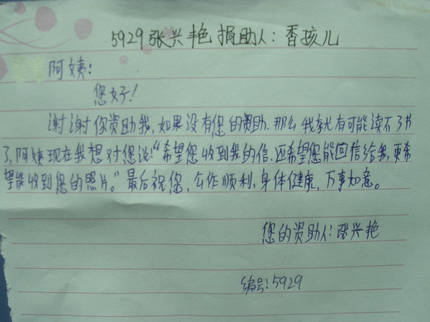 5929张兴艳 捐助人：香孩儿
阿姨：
您好！
谢谢你资助我，如果没有您的资助，那么我就有可能读不了书
了，阿姨现在我想对您说：“希望您收到我的信，还希望您能回信给我，更希
望能收到您的照片。”最后祝您，工作顺利，身体健康，万事如意。
您的资助人：张兴艳
编号：5929